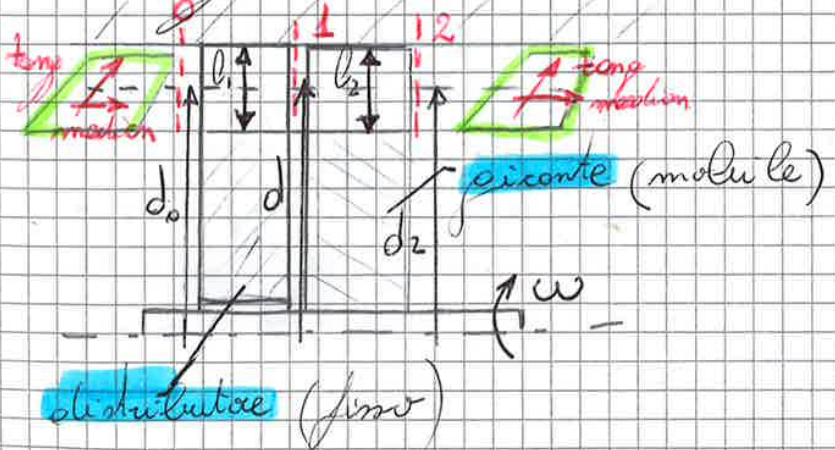 0 1 2
tang
meridian
l₁
l₂
tang
meridian
d₀
d
d₂
girante (mobile)
ω
distributore (fisso)